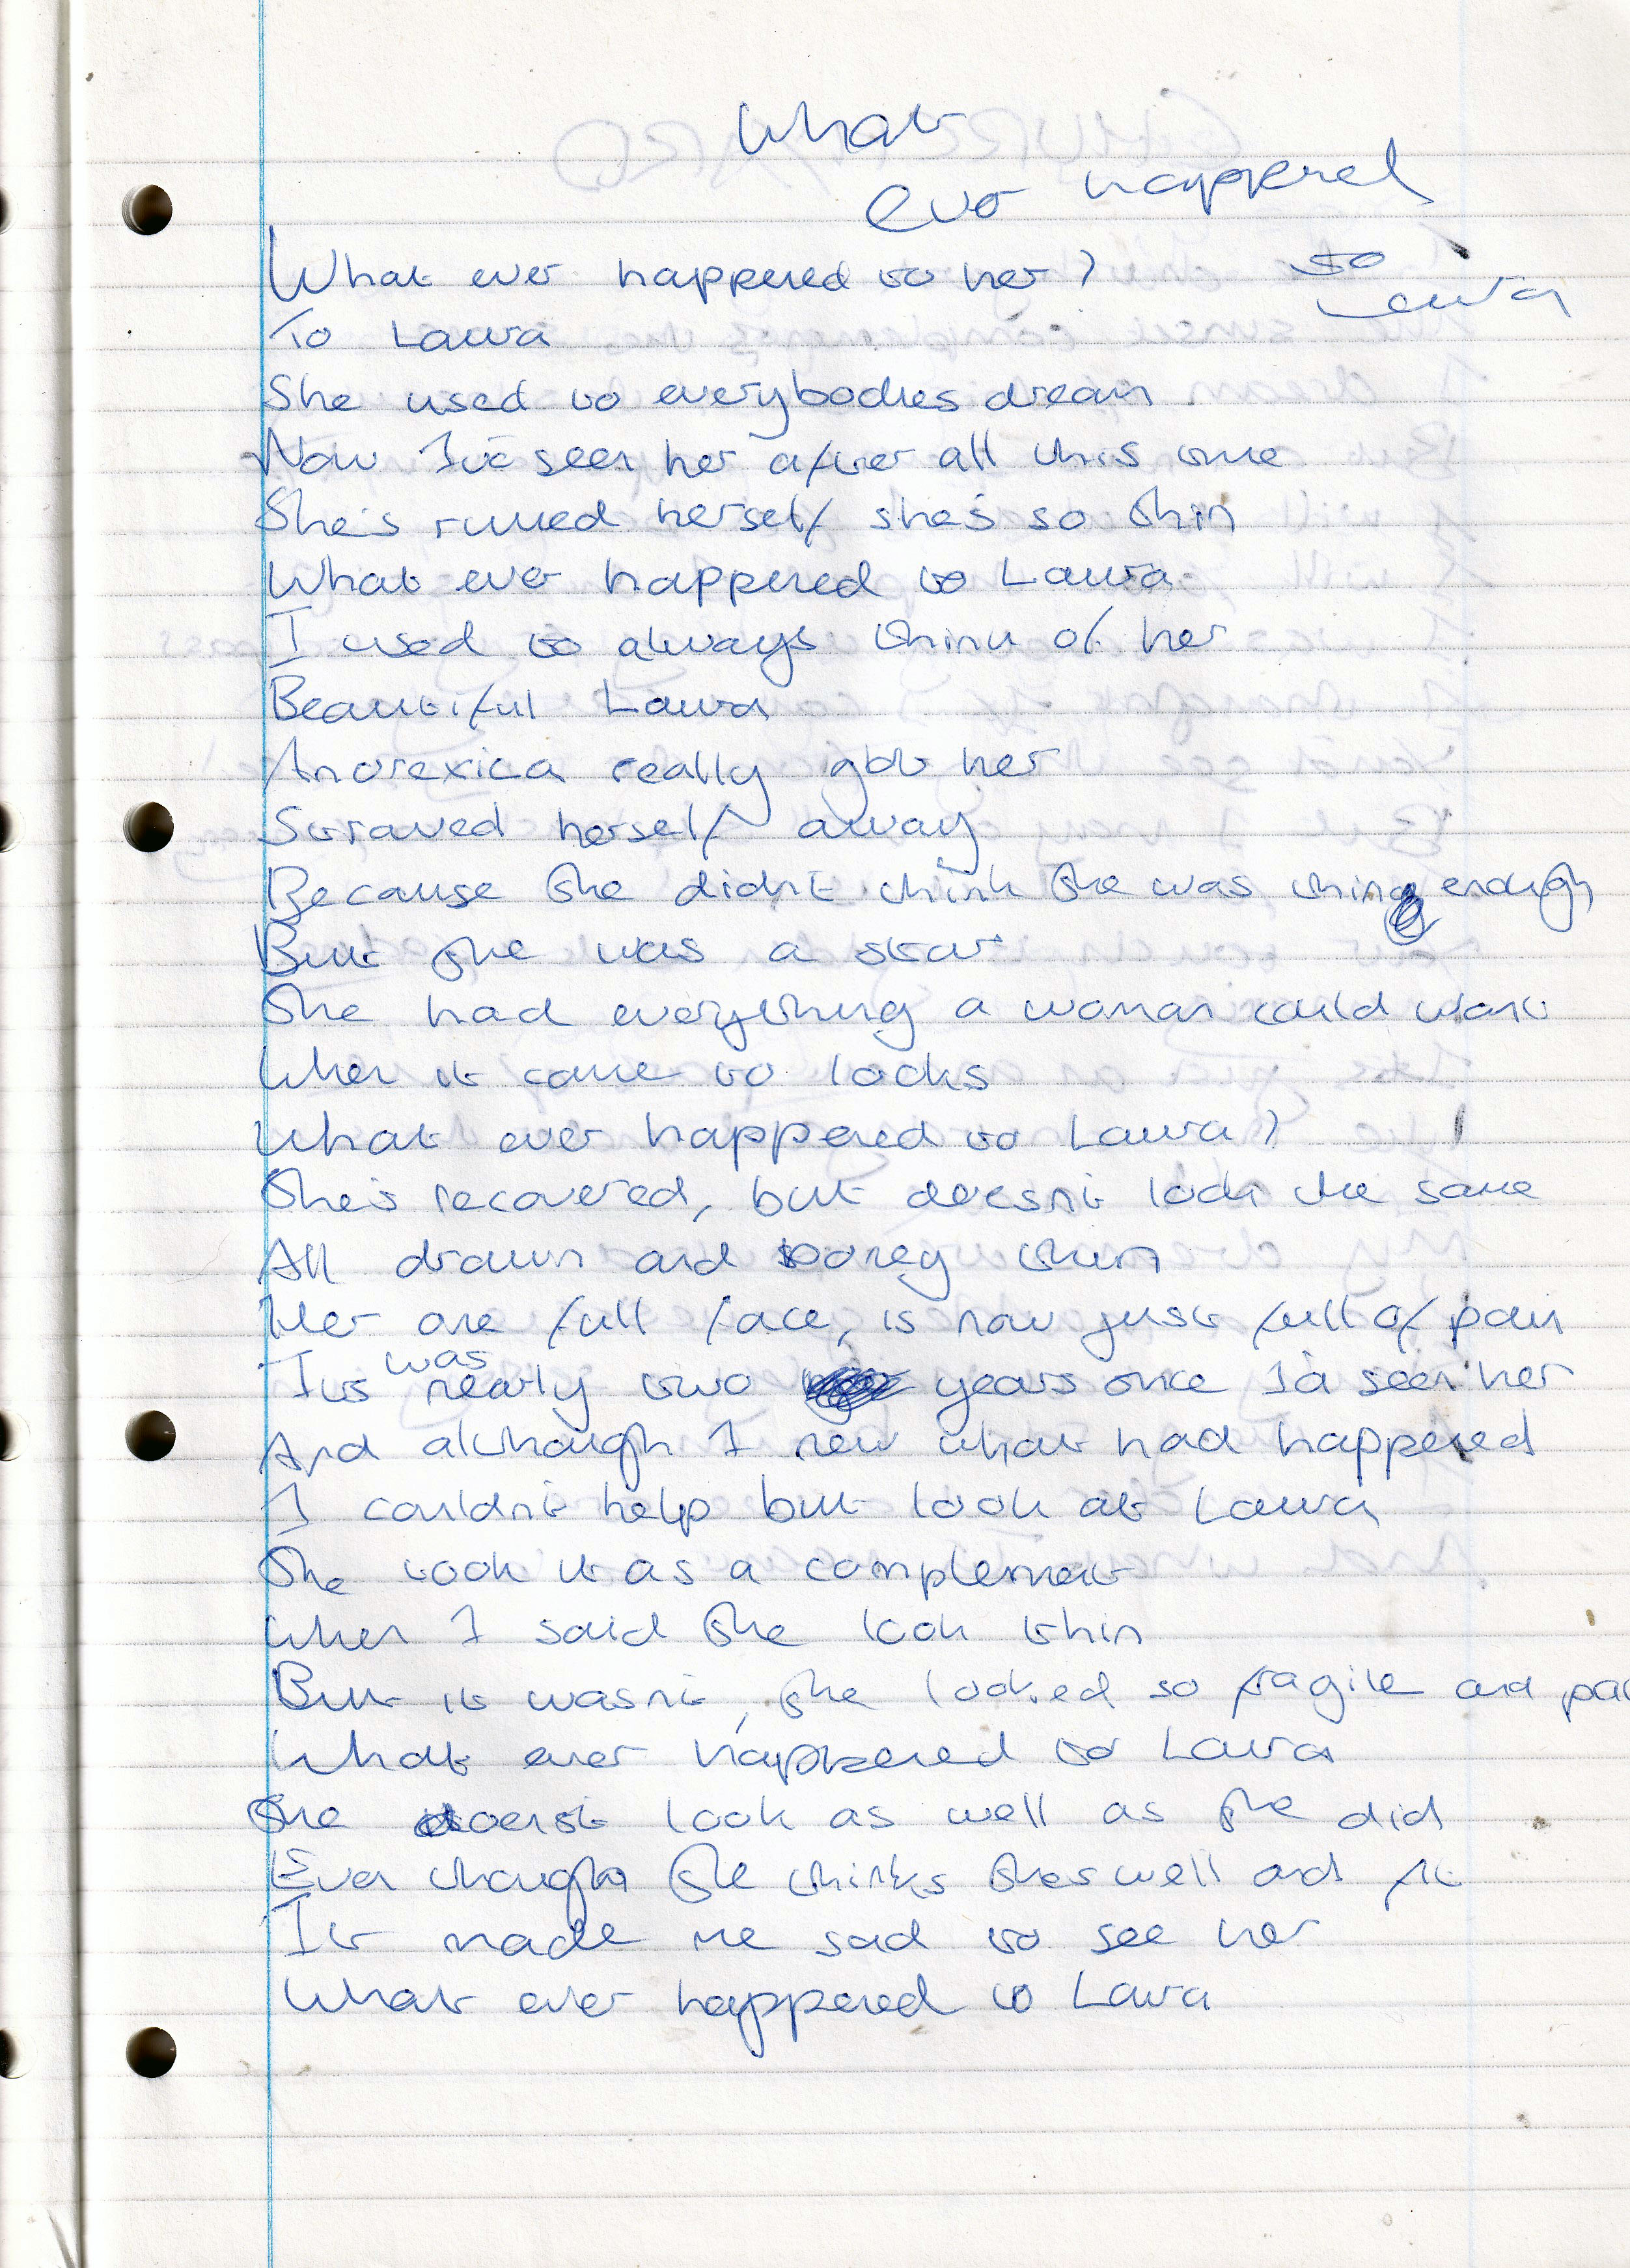 What
ever happened
to
Laura
What ever happened to her?
To Laura
She used to everybodies dream
Now I've seen her after all this time
She's ruined herself she's so thin
What ever happened to Laura
I used to always think of her
Beautiful Laura
Anorexica really got her
Straved herself away
Because she didn't think she was thin enough
But she was a star
She had everything a woman could want
When it came to looks
What ever happened to Laura?
She's recovered, but doesn't look the same
All drawn and boney thin
Her one full face, is now just full of pain
Its was nearly two years since I'd seen her
And although I new what had happened
I couldn't help but look at Laura
She took it as a complement
When I said she look thin
But it wasn't, she looked so fragile and
What ever happened to Laura
She doesn't look as well as she did
Even though she thinks shes well and fit
It made me sad to see her
What ever happened to Laura